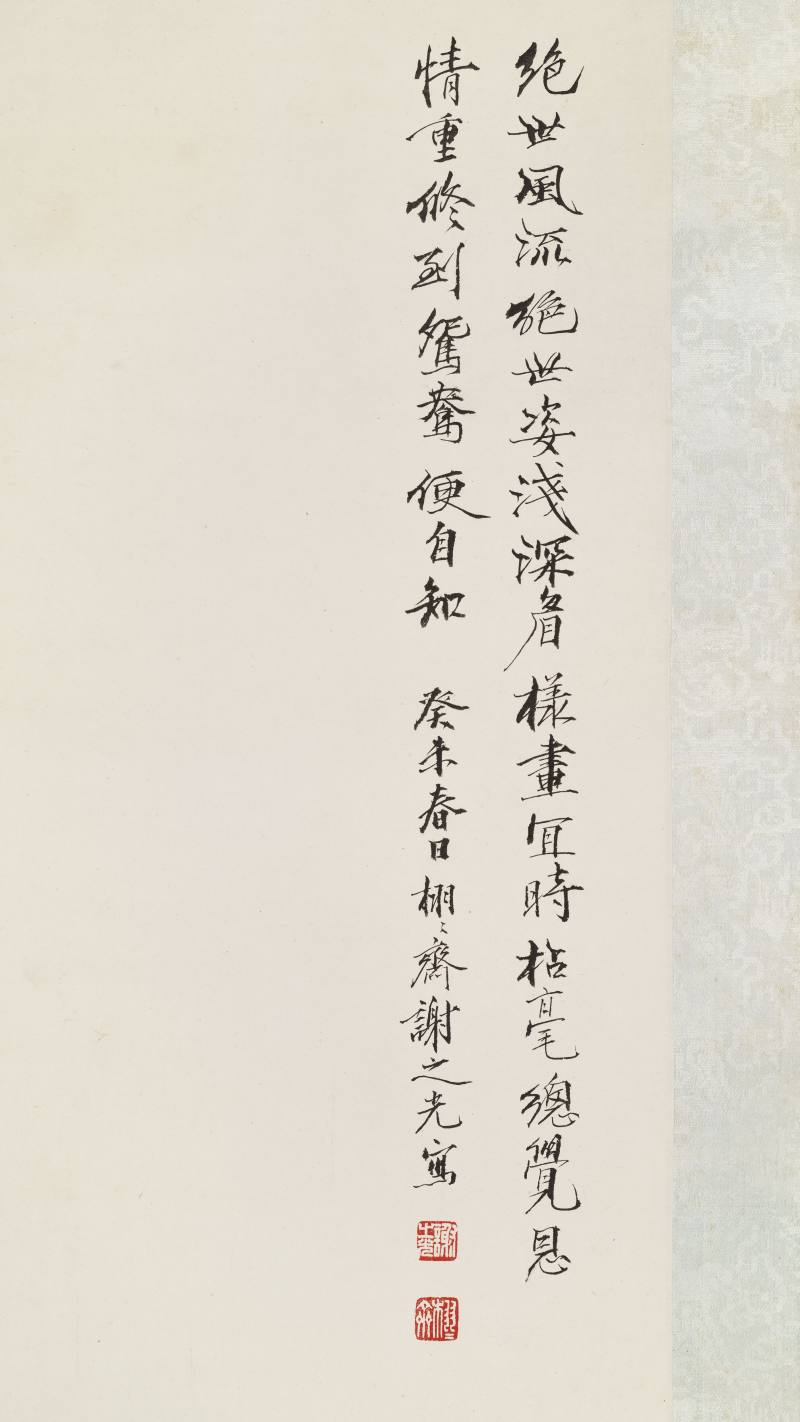 絕世風流絕世姿淺深眉樣畫宜時拈毫總覺恩
情重修到鴛鴦便自知 癸未春日栩栩齋謝之光寫